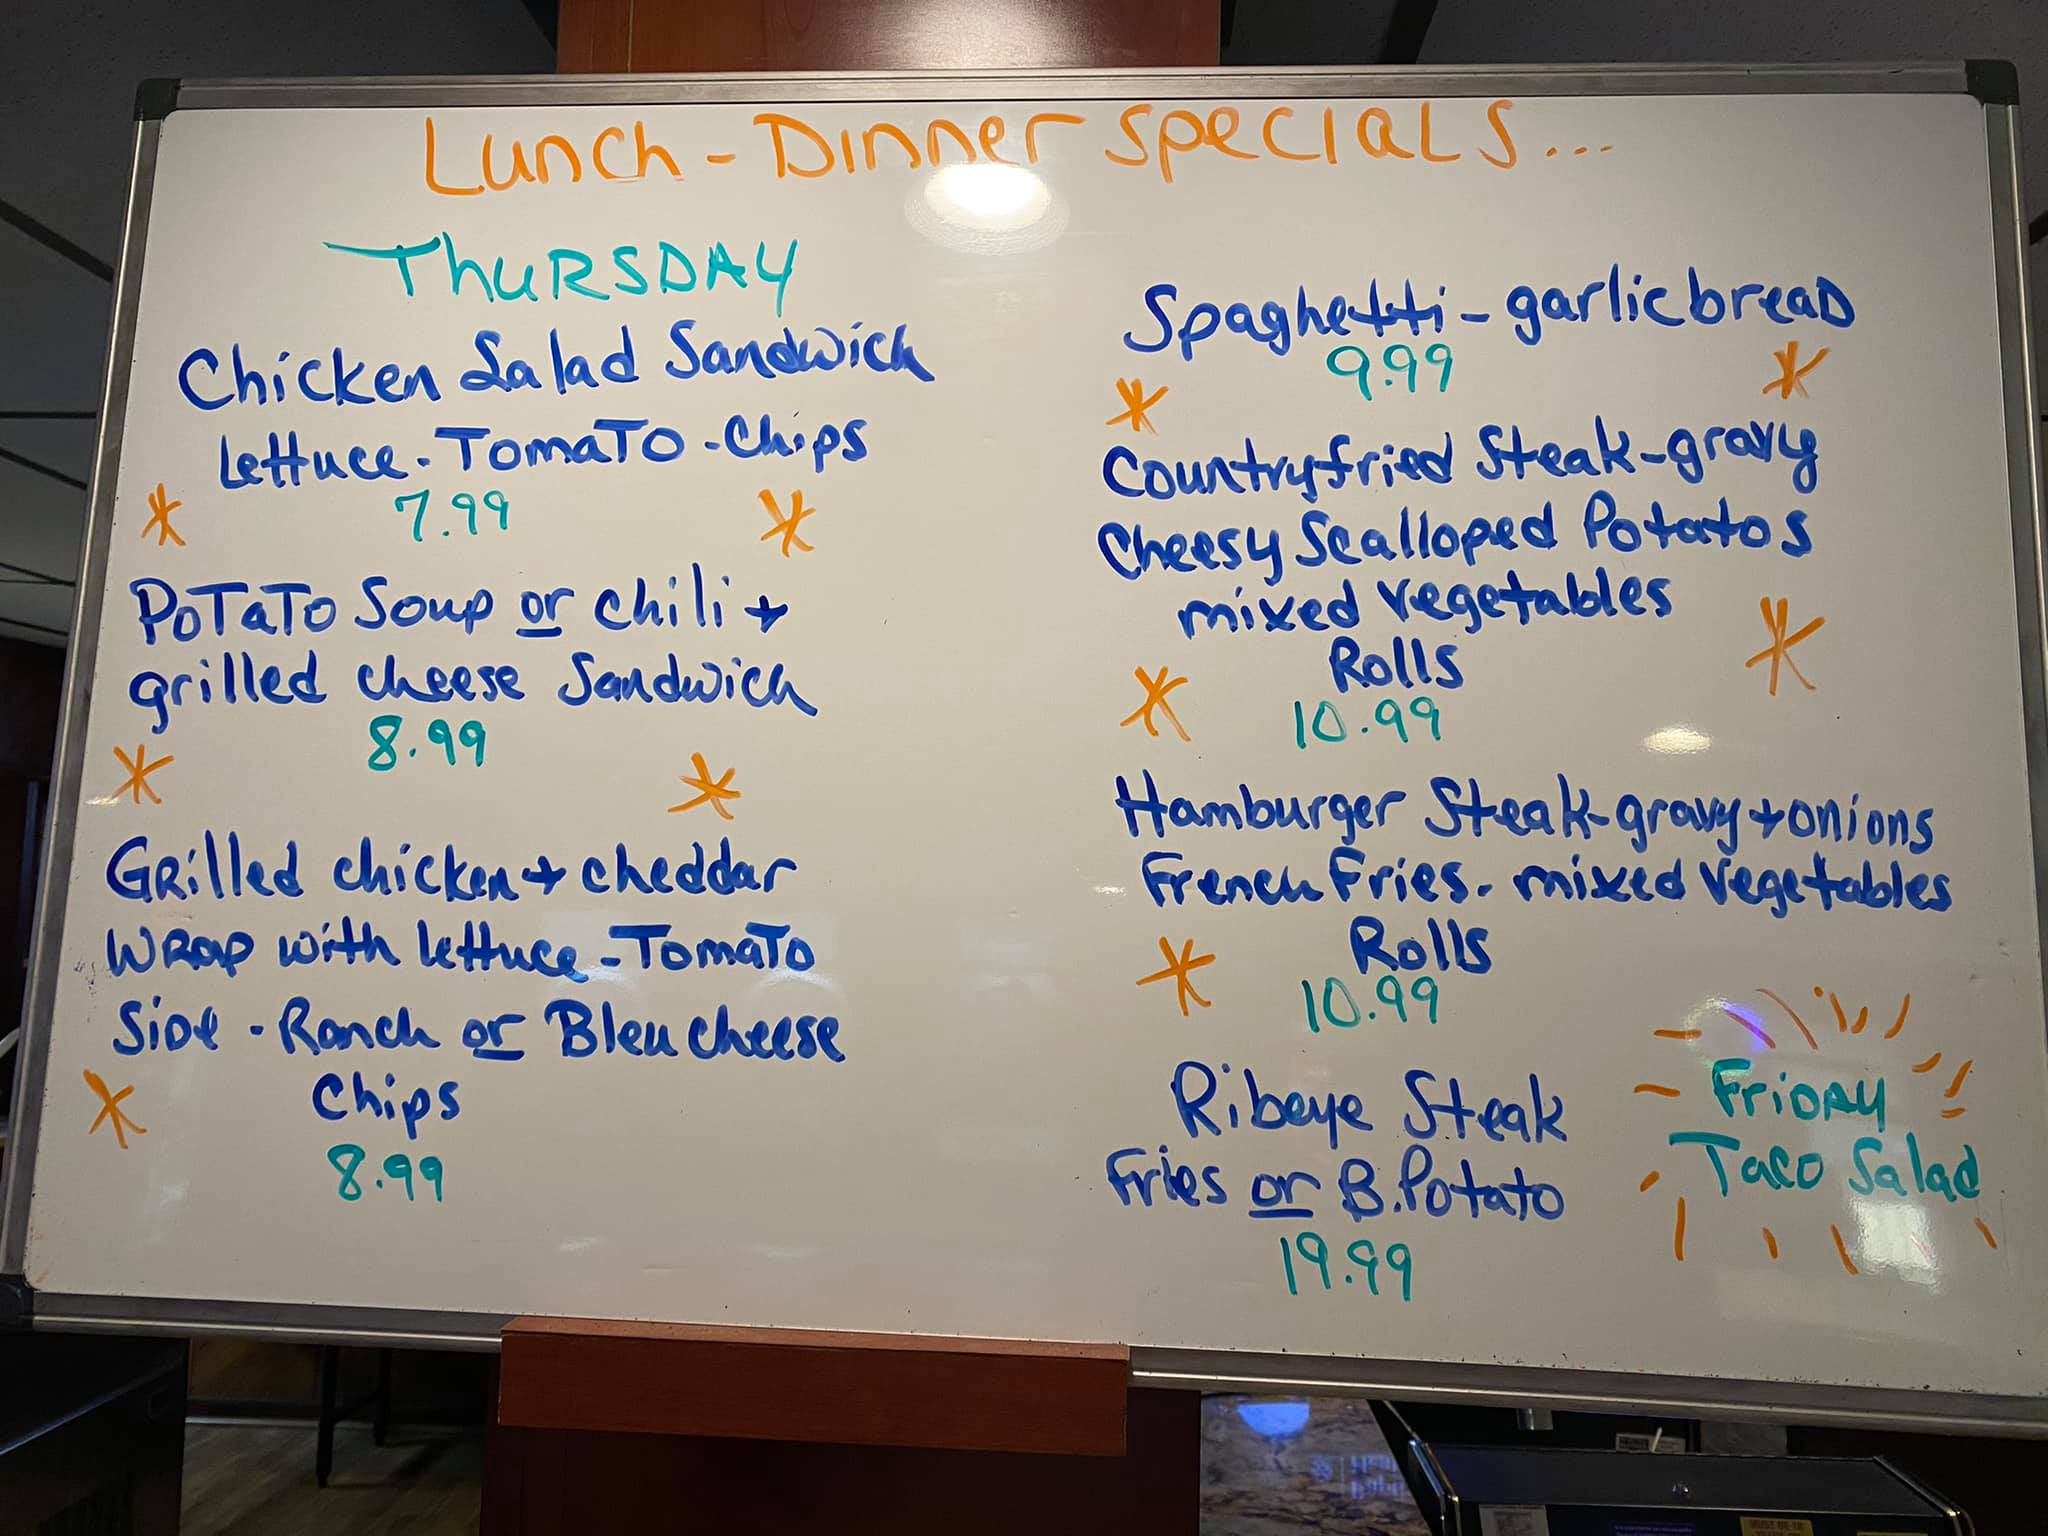 Lunch - Dinner Specials...
Thursday
Chicken Salad Sandwich
Lettuce - Tomato - Chips
7.99
Potato Soup or chili +
grilled cheese Sandwich
8.99
Grilled chicken + cheddar
wrap with lettuce - Tomato
Side - Ranch or Bleu cheese
Chips
8.99
Spaghetti - garlic bread
9.99
Countryfried Steak - gravy
Cheesy Scalloped Potatos
mixed vegetables
Rolls
10.99
Hamburger Steak - gravy + onions
French Fries - mixed vegetables
Rolls
10.99
Ribeye Steak
Fries or B. Potato
19.99
Friday
Taco Salad